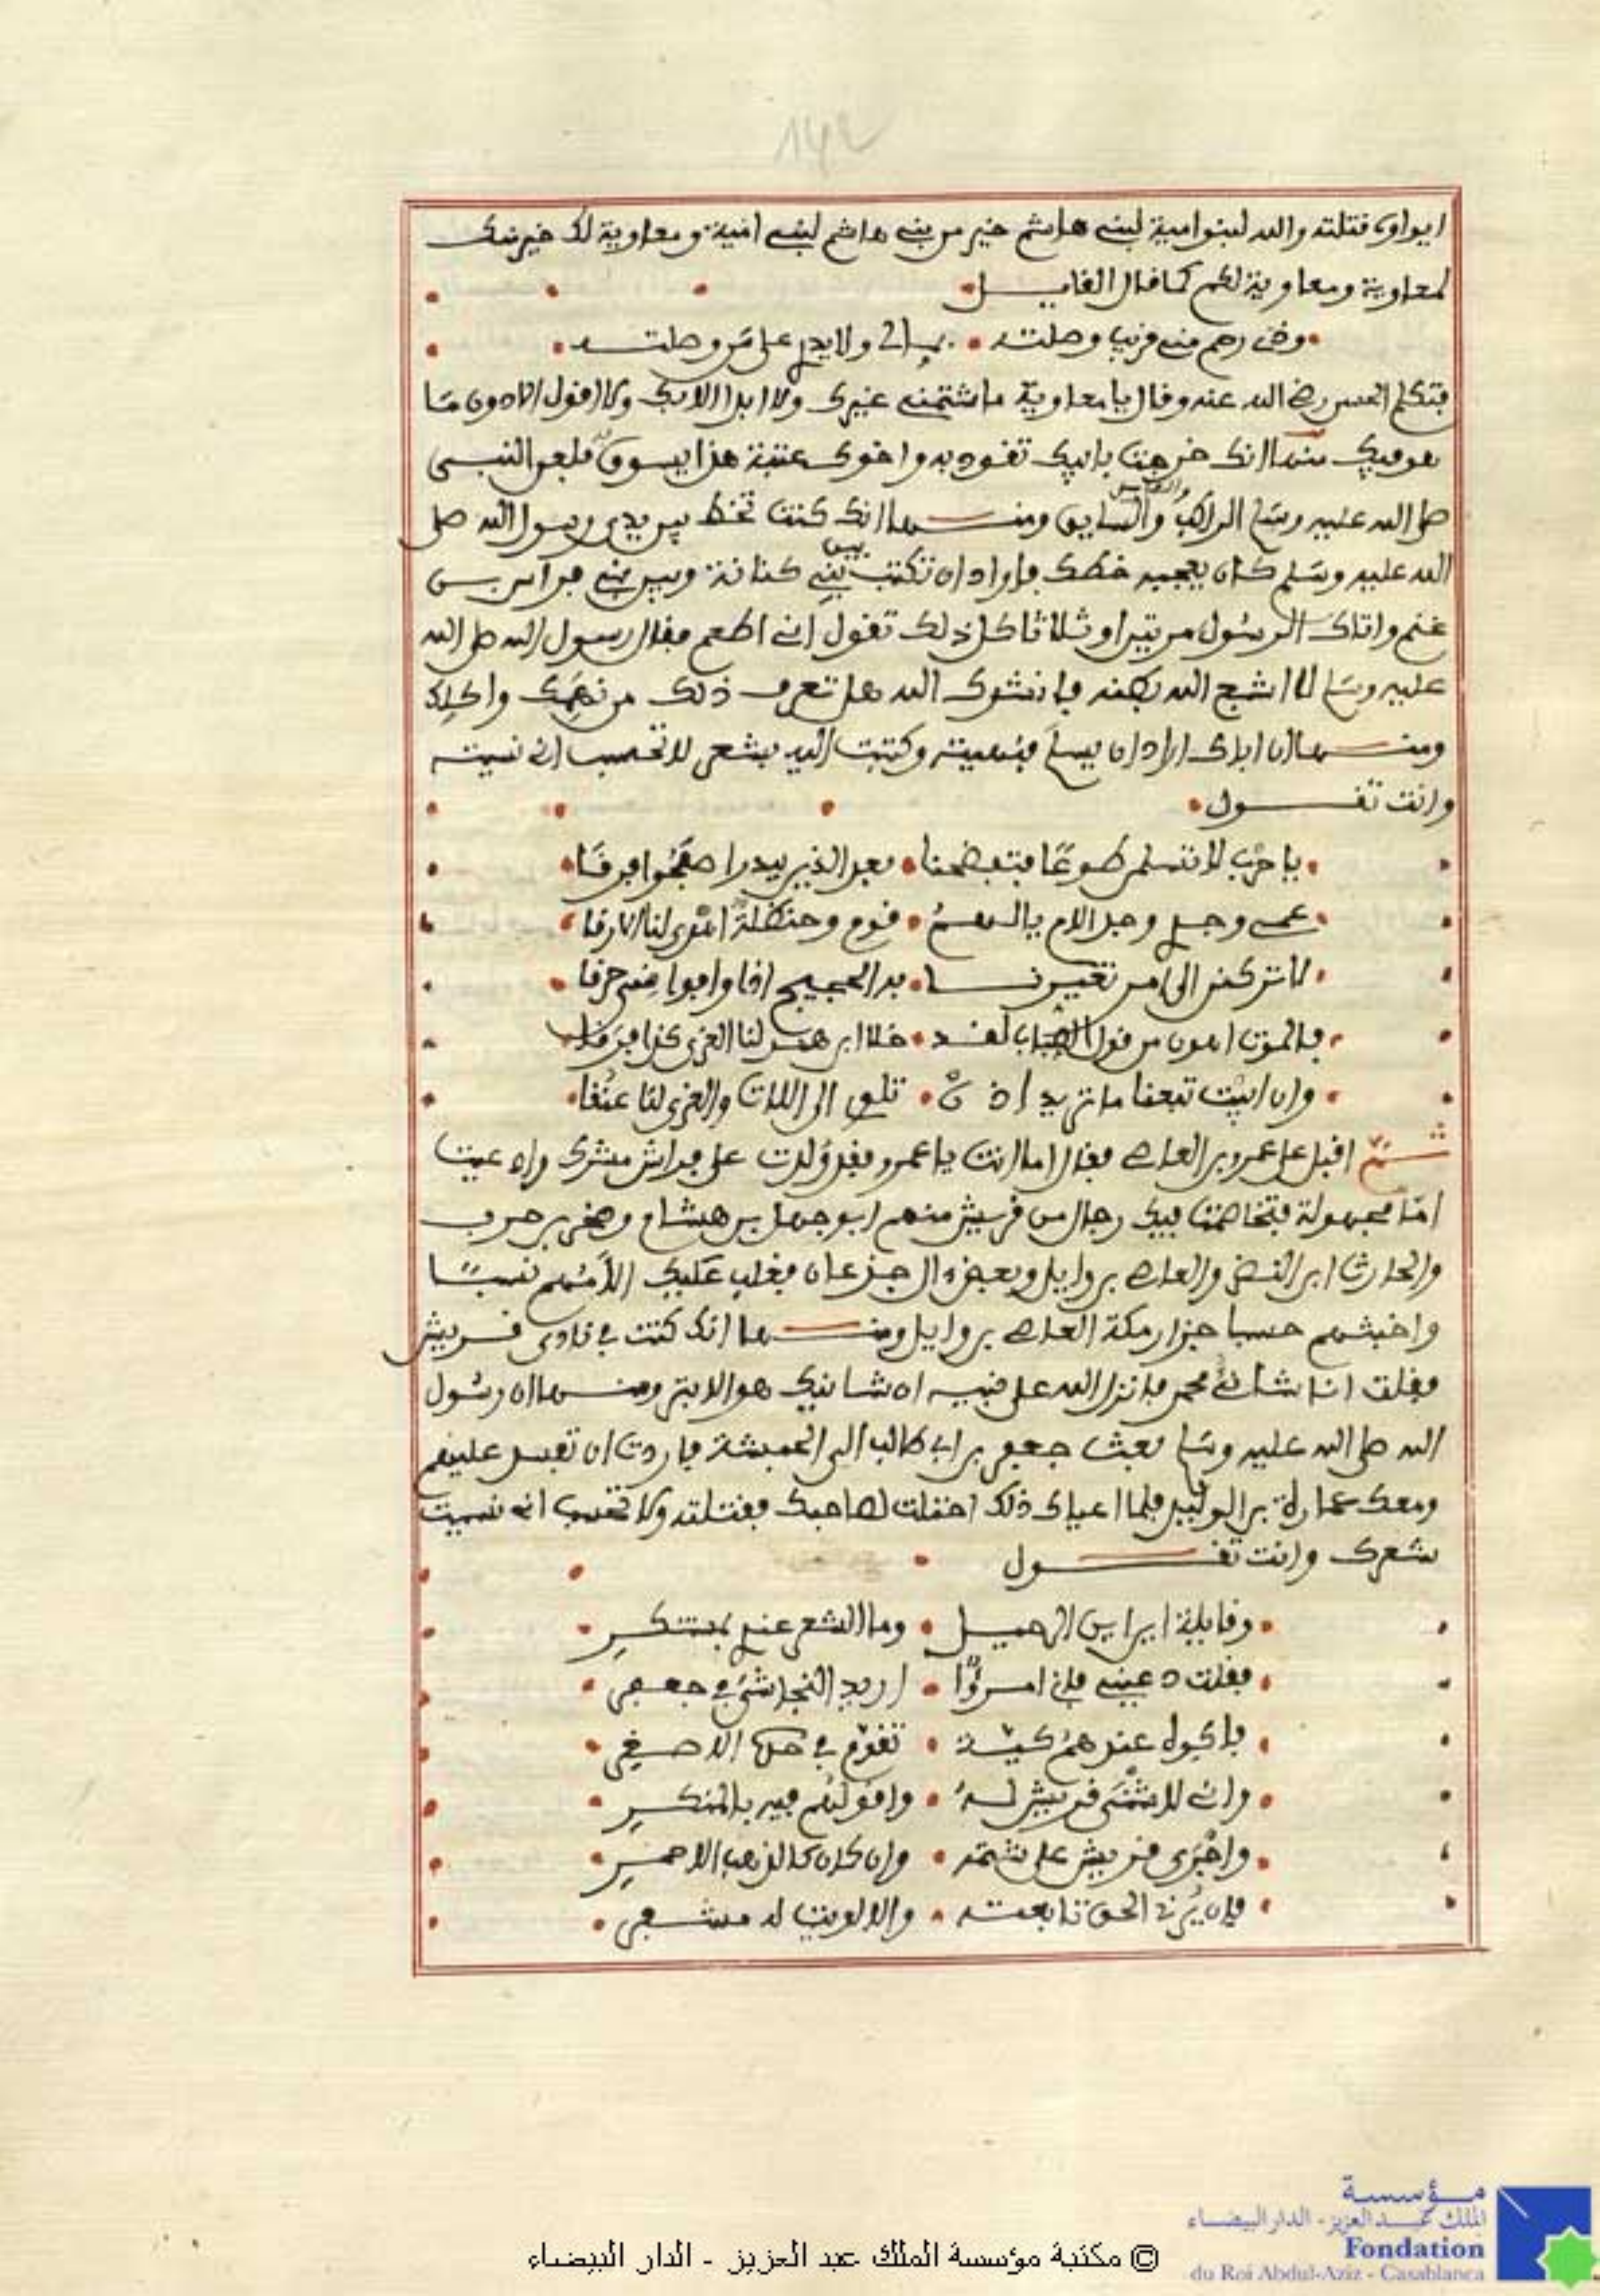 142
ابواوى فقتلته والله لبنوا امية لبني هاشم خير من بني هاشم لبني امية ومعاوية لك خير منك
لمعاوية ومعاوية لكم كما قال القايــل
وذي رحم مني قريب وصلته ولا يدي على من وصلته
فتكلم الحسن رضي الله عنه وقال يا معاوية ما شتمني غيرك ولا ابدا الا بك ولا اقول الا دون ما
هو فيك منها انك خرجت بابيك تقود به واخوك عتبة هذا يسوق فلعن النبي
صلى الله عليه وسلم الراكب والسايق ومنــها انك كنت تخط بين يدي رسول الله صلى
الله عليه وسلم كان يعجبه خطك فاراد ان تكتب بين بني كنانة وبين بني فراس بن
غنم واتاك الرسول مرتين او ثلاثا كل ذلك تقول اني اطعم فقال رسول الله صلى الله
عليه وسلم لا اشبع الله بطنه فانشدك الله هل تعرف ذلك من نهمك واكلك
ومنــها ان اباك اراد ان يسلم فنهيته وكتبت اليه بشعر لا تحسب اني نسيته
وانت تقــول
يا حرب لا تسلمن طوعا فتفضحنا بعد الذين ببدر اصبحوا فرقا
عمي وجدي وجد الام قوم وحنظلة اهدى لنا الارقا
لا تركنن الى امر تعيرنــا
فالموت اهون من قول الصباة لقد خلا ابن هند لنا العزى كذا فرقا
وان ابيت تبعنا ما تريد اذن الى اللات والعزى لنا عنقا
ثــم اقبل على عمرو بن العاصي فقال اما انت يا عمرو فقد ولدت على فراش مشرك
مجهولة فتخاصمت فيك رجال من قريش منهم ابو جهل بن هشام وصخر بن حرب
والحارث ابن النضر والعاصي بن وايل وبعض ال جذعان فغلب عليك الامهم نسبا
واخبثهم حسبا جزار مكة العاصي بن وايل ومنــها انك كنت في نادى قــريش
فقلت انا شانئ محمد فانزل الله على نبيه ان شانيك هو الابتر ومنــها ان رسول
الله صلى الله عليه وسلم بعث جعفر بن ابي طالب الى الحبشة فاردت ان تفسد عليهم
ومعك عمارة بن الوليد فلما اعياك ذلك احتلت لصاحبك فقتلته ولا تحسب اني نسيت
شعرك وانت تقــول
وقايلة اين اين الرحيــل وما الشعر عندي بمبتكر
فقلت دعيني فاني امرؤا اريد النجاشي في جعفر
تقوم في الاصغر
واني لاشنى قريش له واقولهم فيه بالمنكــر
واجرى قريش على شتمه وان كان كالذهب الاحمــر
فان الحق تابعته والا لويت له مشفر
مؤسسة
الملك عبد العزيز - الدار البيضاء
Fondation
du Roi Abdul-Aziz - Casablanca
© مكتبة مؤسسة الملك عبد العزيز - الدار البيضاء